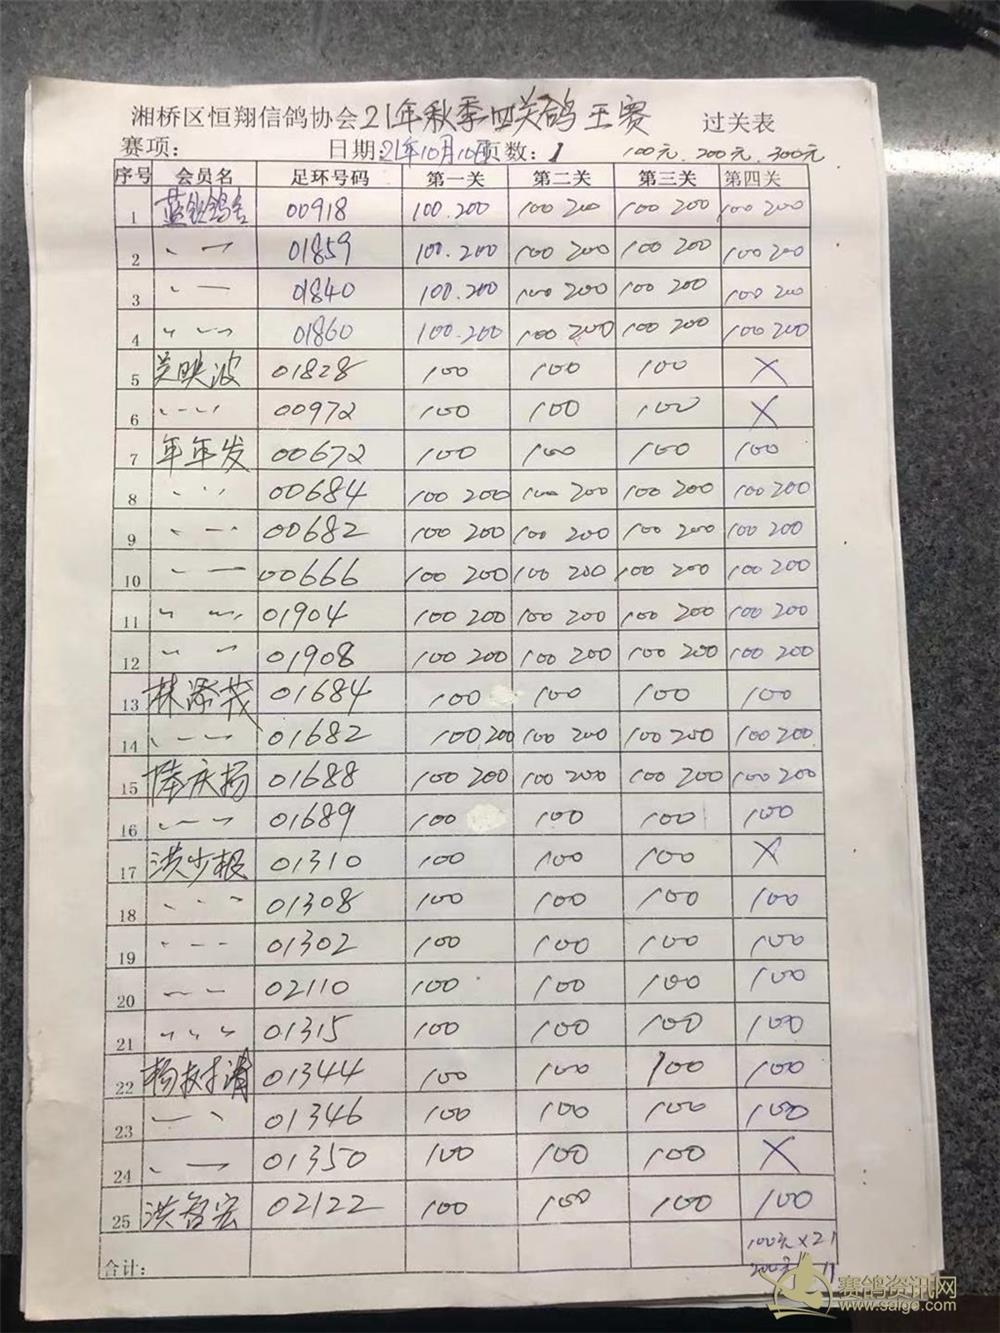 湘桥区恒翔信鸽协会21年秋季四关鸽王赛 过关表
赛项： 日期:21年10月10日 页数：1 100元.200元.300元
序号 会员名 足环号码 第一关 第二关 第三关 第四关
1 00918 100.200 100 200 100 200 100 200
2 〃 — 01859 100.200 100 200 100 200 100 200
3 〃 — 01840 100.200 100 200 100 200 100 200
4 〃 〃 01860 100.200 100 200 100 200 100 200
5 关映波 01828 100 100 100 X
6 〃 〃 00972 100 100 100 X
7 年年发 00672 100 100 100 100
8 〃 〃 00684 100 200 100 200 100 200 100 200
9 〃 — 00682 100 200 100 200 100 200 100 200
10 〃 — 00666 100 200 100 200 100 200 100 200
11 〃 〃 01904 100 200 100 200 100 200 100 200
12 〃 〃 01908 100 200 100 200 100 200 100 200
13 林添茂 01684 100 100 100 100
14 〃 — 01682 100 200 100 200 100 200 100 200
15 陈庆扬 01688 100 200 100 200 100 200 100 200
16 〃 — 01689 100 100 100 100
17 洪少根 01310 100 100 100 X
18 〃 〃 01308 100 100 100 100
19 〃 — 01302 100 100 100 100
20 〃 — 02110 100 100 100 100
21 〃 〃 〃 01315 100 100 100 100
22 杨树清 01344 100 100 100 100
23 〃 〃 01346 100 100 100 100
24 〃 — 01350 100 100 100 X
25 洪智宏 02122 100 100 100 100
合计： 100元×21
200元 11
赛鸽资讯网
www.saige.com